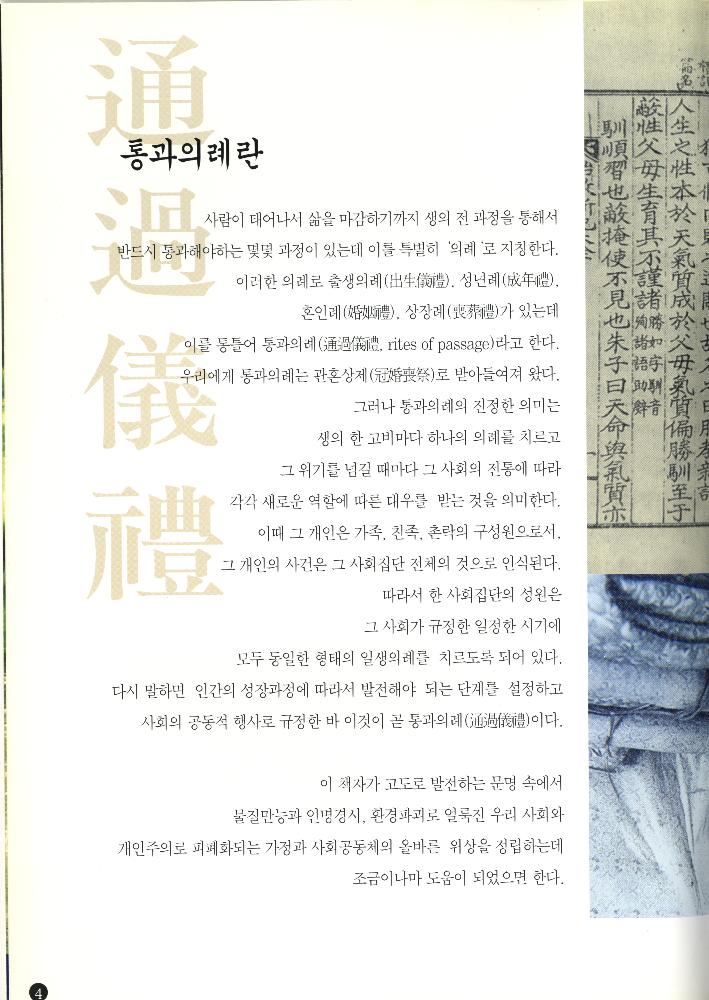 通過儀禮
통과의례란
사람이 태어나서 삶을 마감하기까지 생의 전 과정을 통해서
반드시 통과해야하는 몇몇 과정이 있는데 이를 특별히 '의례'로 지칭한다.
이러한 의례로 출생의례(出生儀禮), 성년례(成年禮),
혼인례(婚姻禮), 상장례(喪葬禮)가 있는데
이를 통틀어 통과의례(通過儀禮, rites of passage)라고 한다.
우리에게 통과의례는 관혼상제(冠婚喪祭)로 받아들여져 왔다.
그러나 통과의례의 진정한 의미는
생의 한 고비마다 하나의 의례를 치르고
그 위기를 넘길 때마다 그 사회의 전통에 따라
각각 새로운 역할에 따른 대우를 받는 것을 의미한다.
이때 그 개인은 가족, 친족, 촌락의 구성원으로서,
그 개인의 사건은 그 사회집단 전체의 것으로 인식된다.
따라서 한 사회집단의 성원은
그 사회가 규정한 일정한 시기에
모두 동일한 형태의 일생의례를 치르도록 되어 있다.
다시 말하면 인간의 성장과정에 따라서 발전해야 되는 단계를 설정하고
사회의 공동적 행사로 규정한 바 이것이 곧 통과의례(通過儀禮)이다.
이 책자가 고도로 발전하는 문명 속에서
물질만능과 인명경시, 환경파괴로 얼룩진 우리 사회와
개인주의로 피폐화되는 가정과 사회공동체의 올바른 위상을 정립하는데
조금이나마 도움이 되었으면 한다.
人生之性本於天氣質成於父母氣質偏勝馴至于
敝性父母生育其不謹諸勝如字馴音殉諸語助辭
馴順習也敝掩使不見也朱子曰天命與氣質亦
4